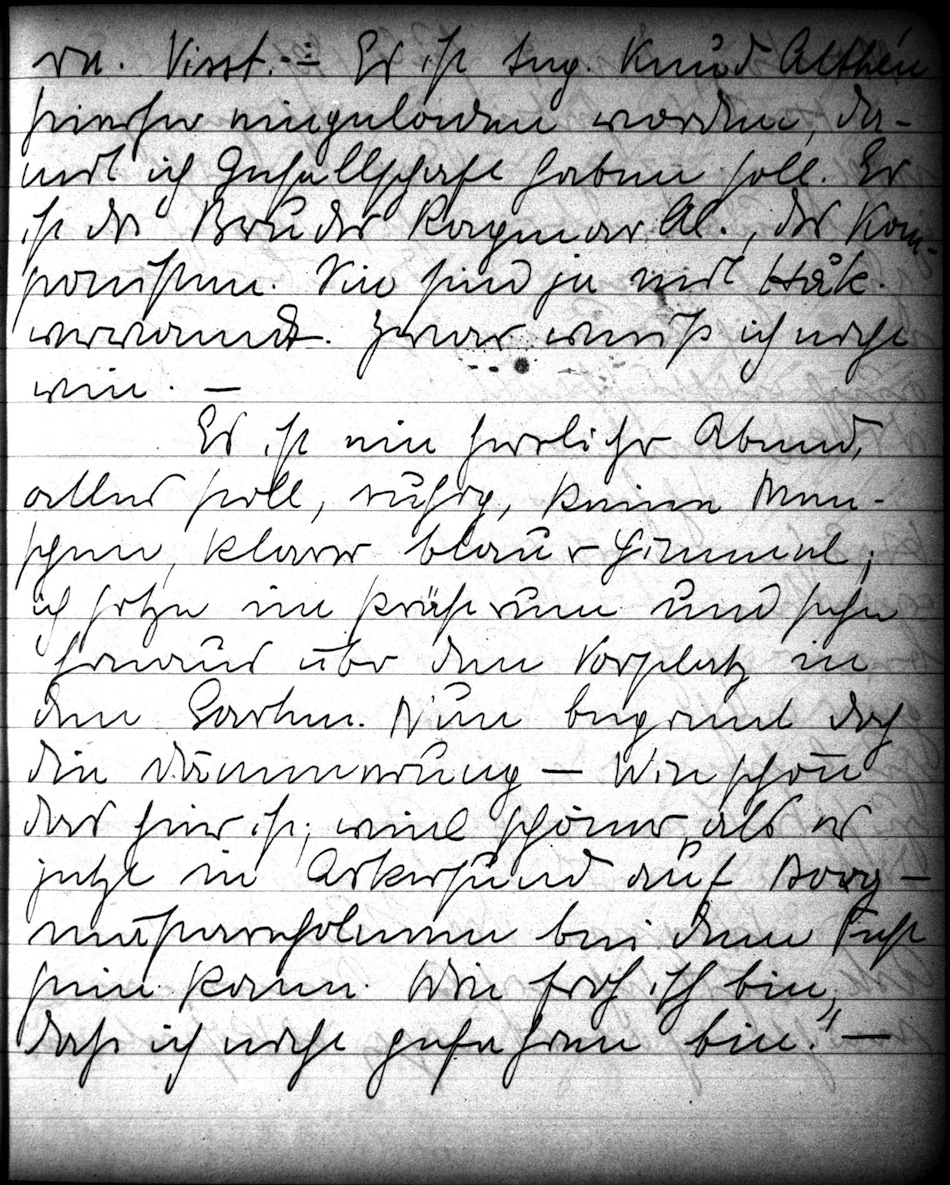 ra. Visst. ÷ Es ist Ing. Knud Althén
hierher eingeladen worden, da-
mit ich Gesellschaft haben soll. Er
ist der Bruder Ragnar Al., des Kom-
ponisten. Sie sind ja mit Håk.
verwandt. Zwar weiß ich nicht
wie. —
Es ist ein herrlicher Abend,
alles still, ruhig, keine Men-
schen, klarer blauer Himmel;
ich sitze im und sehe
hinaus über den Vorplatz in
den Garten. Nun beginnt doch
die Dämmerung — Wie schön
das hier ist, viel schöner, als es
jetzt in Askersund auf Borg-
mästareholmen bei dem Fest
sein kann. Wie froh ich bin,
daß ich nicht gefahren bin." —